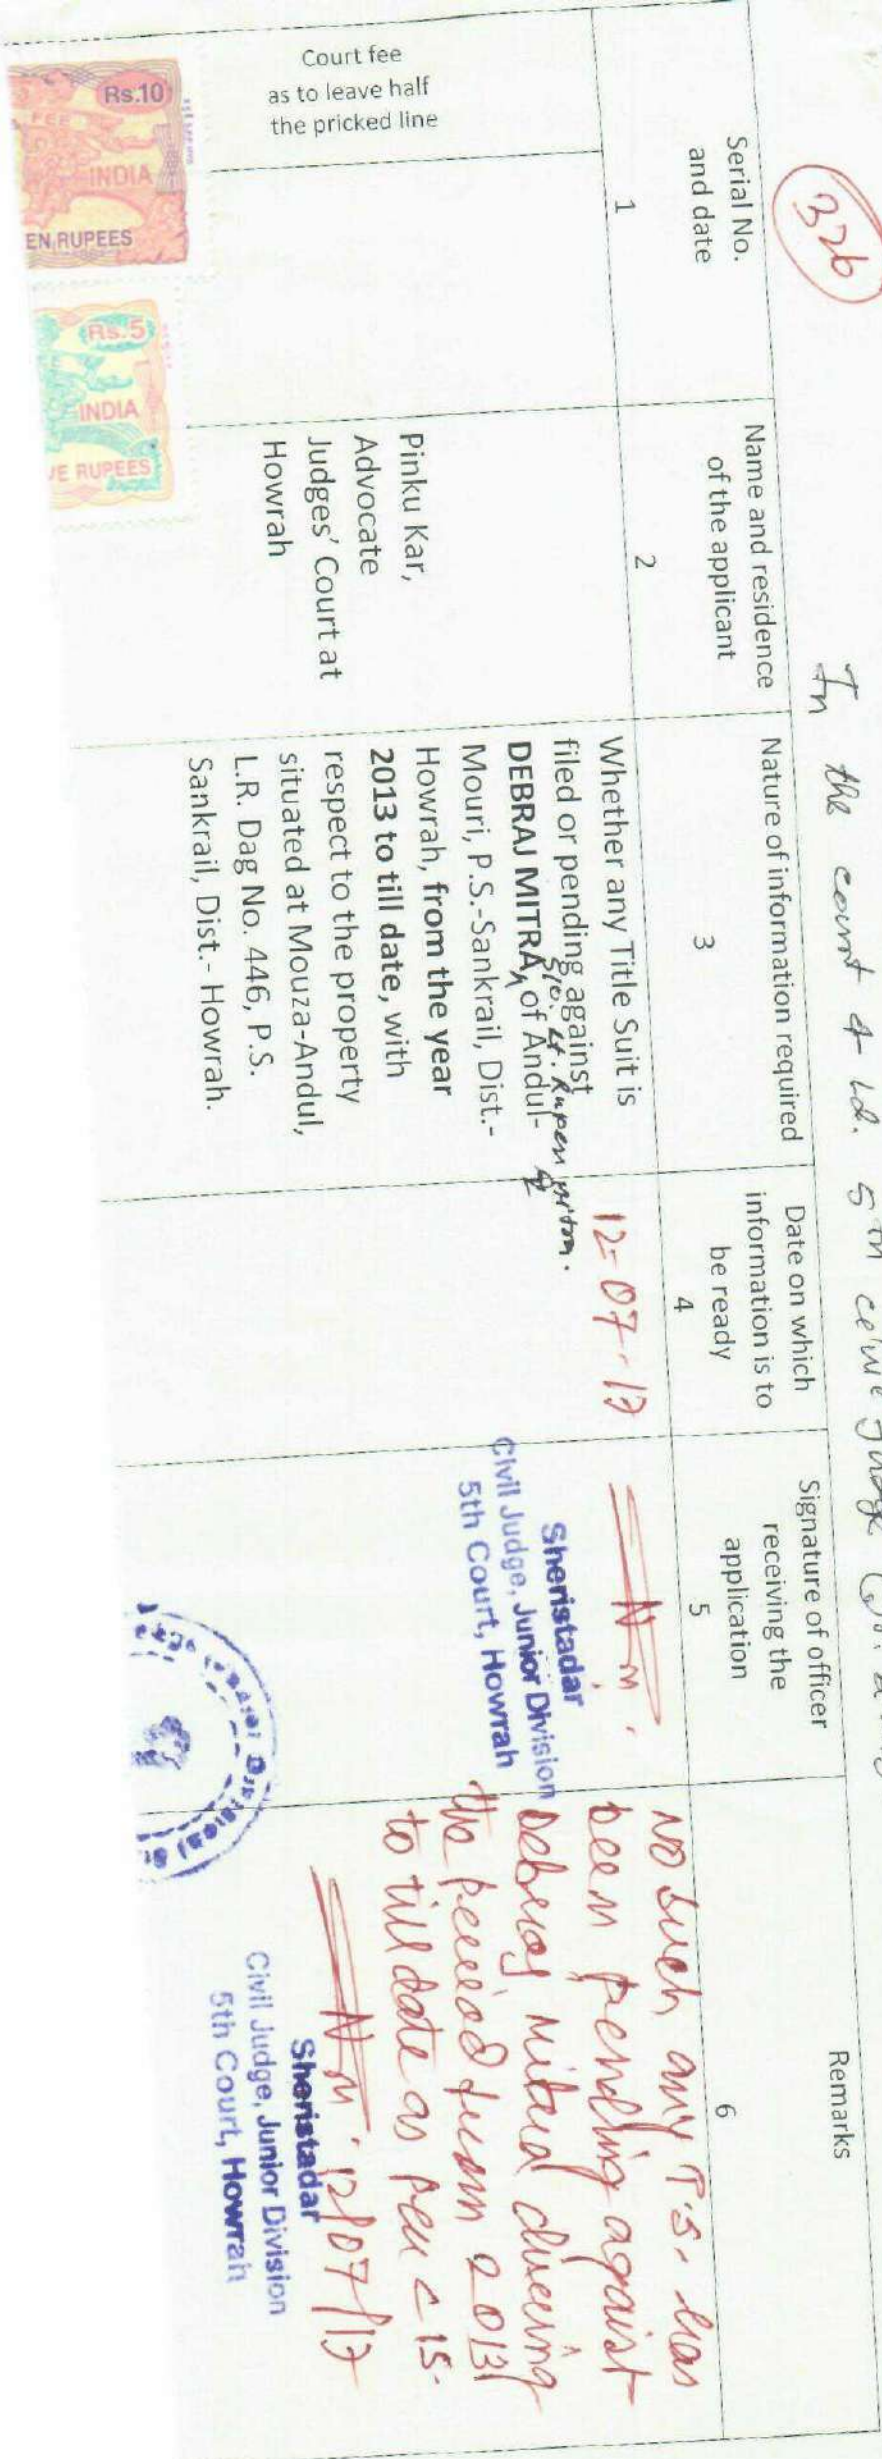 326
In the court of Ld. 5th Civil Judge
Serial No.
and date
Name and residence
of the applicant
Nature of information required
Date on which
information is to
be ready
Signature of officer
receiving the
application
Remarks
1
2
3
4
5
6
Court fee
as to leave half
the pricked line
Pinku Kar,
Advocate
Judges' Court at
Howrah
Whether any Title Suit is
filed or pending against
S/o. Lt. Rupen Mitra.
DEBRAJ MITRA, of Andul-
Mouri, P.S.-Sankrail, Dist.-
Howrah, from the year
2013 to till date, with
respect to the property
situated at Mouza-Andul,
L.R. Dag No. 446, P.S.
Sankrail, Dist.- Howrah.
12-07-17
Sheristadar
Civil Judge, Junior Division
5th Court, Howrah
No such any T.S. has
been pending against
Debraj Mitra during
the period from 2013
to till date as per C 15.
12/07/17
Sheristadar
Civil Judge, Junior Division
5th Court, Howrah
Rs.10
FEE
INDIA
EN RUPEES
Rs.5
INDIA
VE RUPEES